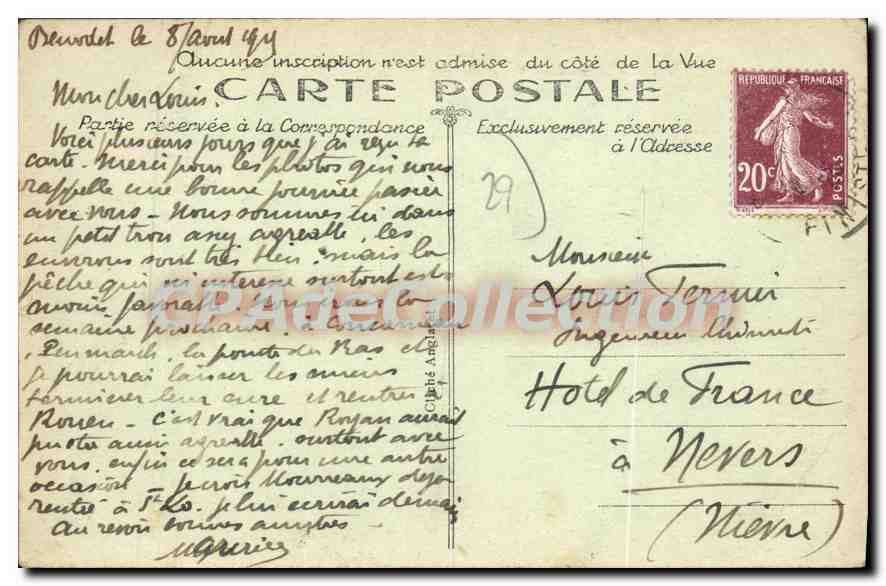 Benodet le 8 Aout
Aucune inscription n'est admise du côté de la Vue
CARTE POSTALE
Partie réservée à la Correspondance
Exclusivement réservée
à l'Adresse
Mon cher Louis.
Voici plusieurs jours que j'ai reçu ta
carte. Merci pour les photos qui nous
rappelle une bonne journée passée
avec vous - Nous sommes ici dans
un petit trou assez agreable, les
environs sont très bien, mais la
pêche qui m'interesse surtout est
moins favorable
semaine prochaine, à Concarneau
, Penmarch, la pointe du Raz et
je pourrai laisser les miens
terminer leur cure et rentrer
Rouen - C'est vrai que Royan aurait
aussi agreable. surtout avec
vous, enfin ce sera pour une autre
occasion - Je crois Mourreaux deja
rentré à St Lo. je lui ecrirai demain
Au revoir bonnes
Maurice
29
REPUBLIQUE FRANÇAISE
20c
POSTES
FINISTERE
Monsieur
Louis Termier
Ingenieur Chimiste
Hotel de France
à Nevers
(Nièvre)
Cliché Anglaret
CPAdeCollection